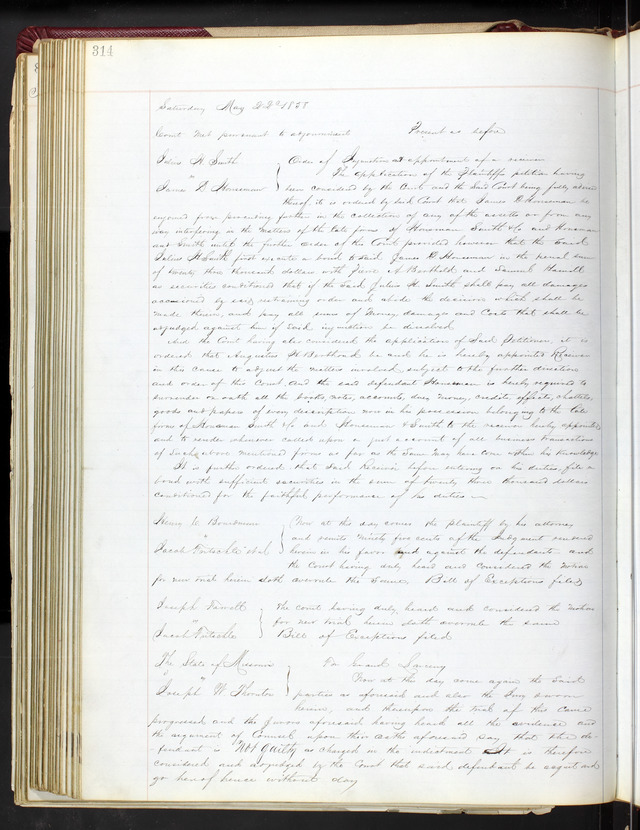 314
Saturday May 22d 1858
Court Met pursuant to adjournment Present as before
Julius H Smith } Order of Injunction & appointment of a receiver
vs The application of the Plaintiffs petition having
James D Houseman been considered by the Court and the Said Court being fully advised
thereof, it is ordered by said Court that James D Houseman be
enjoined from proceeding further in the collection of any of the assets or from any
way interfering in the matters of the late firms of Houseman Smith & Co and Houseman
and Smith until the further order of this Court provided however that the Said
Julius H Smith first execute a bond to said James D Houseman in the penal sum
of twenty three thousand dollars with A Berthold and Samuel
as securities conditioned that if the Said Julius H Smith shall pay all damages
occasioned by said restraining order and abide the decision which shall be
made therein, and pay all sums of Money damages and Costs that shall be
adjudged against him if Said injunction be dissolved
And the Court having also considered the application of Said Petitioner, it is
ordered that Augustus H be and he is hereby appointed Receiver
in this cause to adjust the matters involved subject to the further direction
and order of this Court, and the said defendant Houseman is hereby required to
surrender on oath all the books, notes, accounts, dues, money, credits, effects, chattels,
goods and papers of every description now in his possession belonging to the late
firms of Houseman Smith & Co and Houseman & Smith to the receiver hereby appointed
and to render whenever called upon a just account of all business transactions
of Said above mentioned firms as far as the Same may have come within his knowledge
It is further ordered that Said Receiver before entering on his duties file a
bond with sufficient securities in the sum of twenty three thousand dollars
conditioned for the faithful performance of his duties
Henry C } Now at this day comes the plaintiff by his attorney
vs and remits Ninety five cents of the Judgment rendered
Jacob Fritschle et al herein in his favor and against the defendants and
the Court having duly heard and considered the motion
for new trial herein doth overrule the Same. Bill of Exceptions filed
Joseph } The court having duly heard and considered the motion
vs for new trial herein doth overrule the same
Jacob Fritschle Bill of Exceptions filed
The State of Missouri } For Grand Larceny
vs Now at the day come again the Said
Joseph W Thornton parties as aforesaid and also the Jury sworn
herein, and thereupon the trial of this Cause
progressed and the jurors aforesaid having heard all the evidence and
the argument of Counsel upon their oaths aforesaid Say, that the de-
fendant is Not Guilty as charged in the indictment It is therefore
considered and adjudged by the Court that said defendant be acquit and
go hereof hence without day